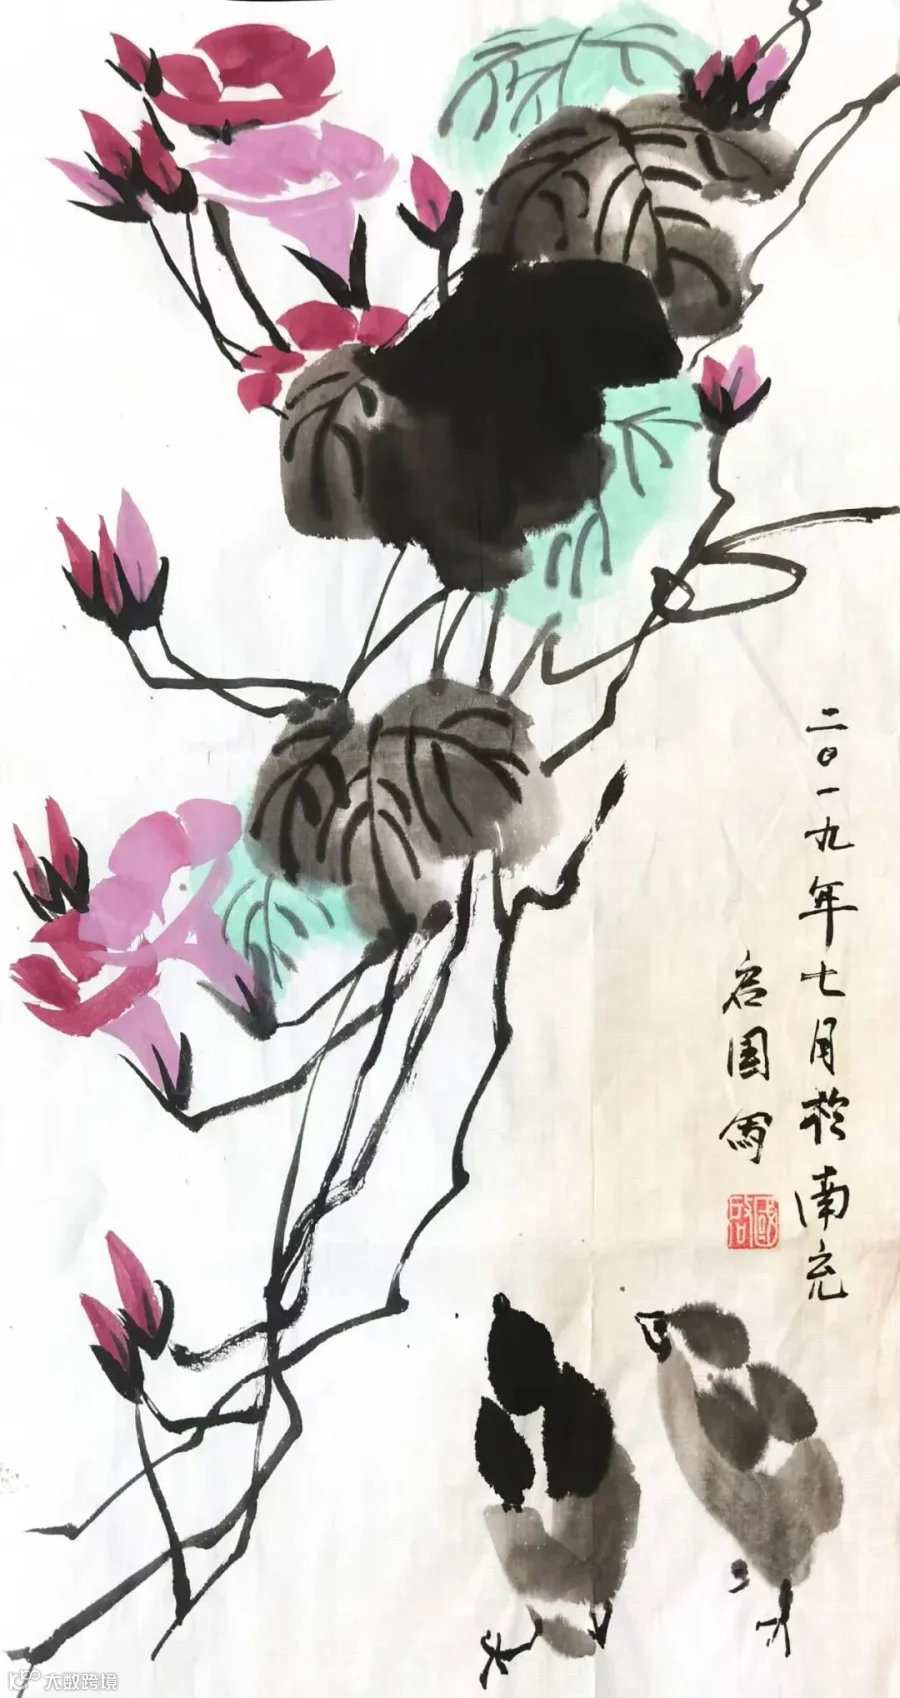 二〇一九年七月於南充
启国写
啟國
大数跨境